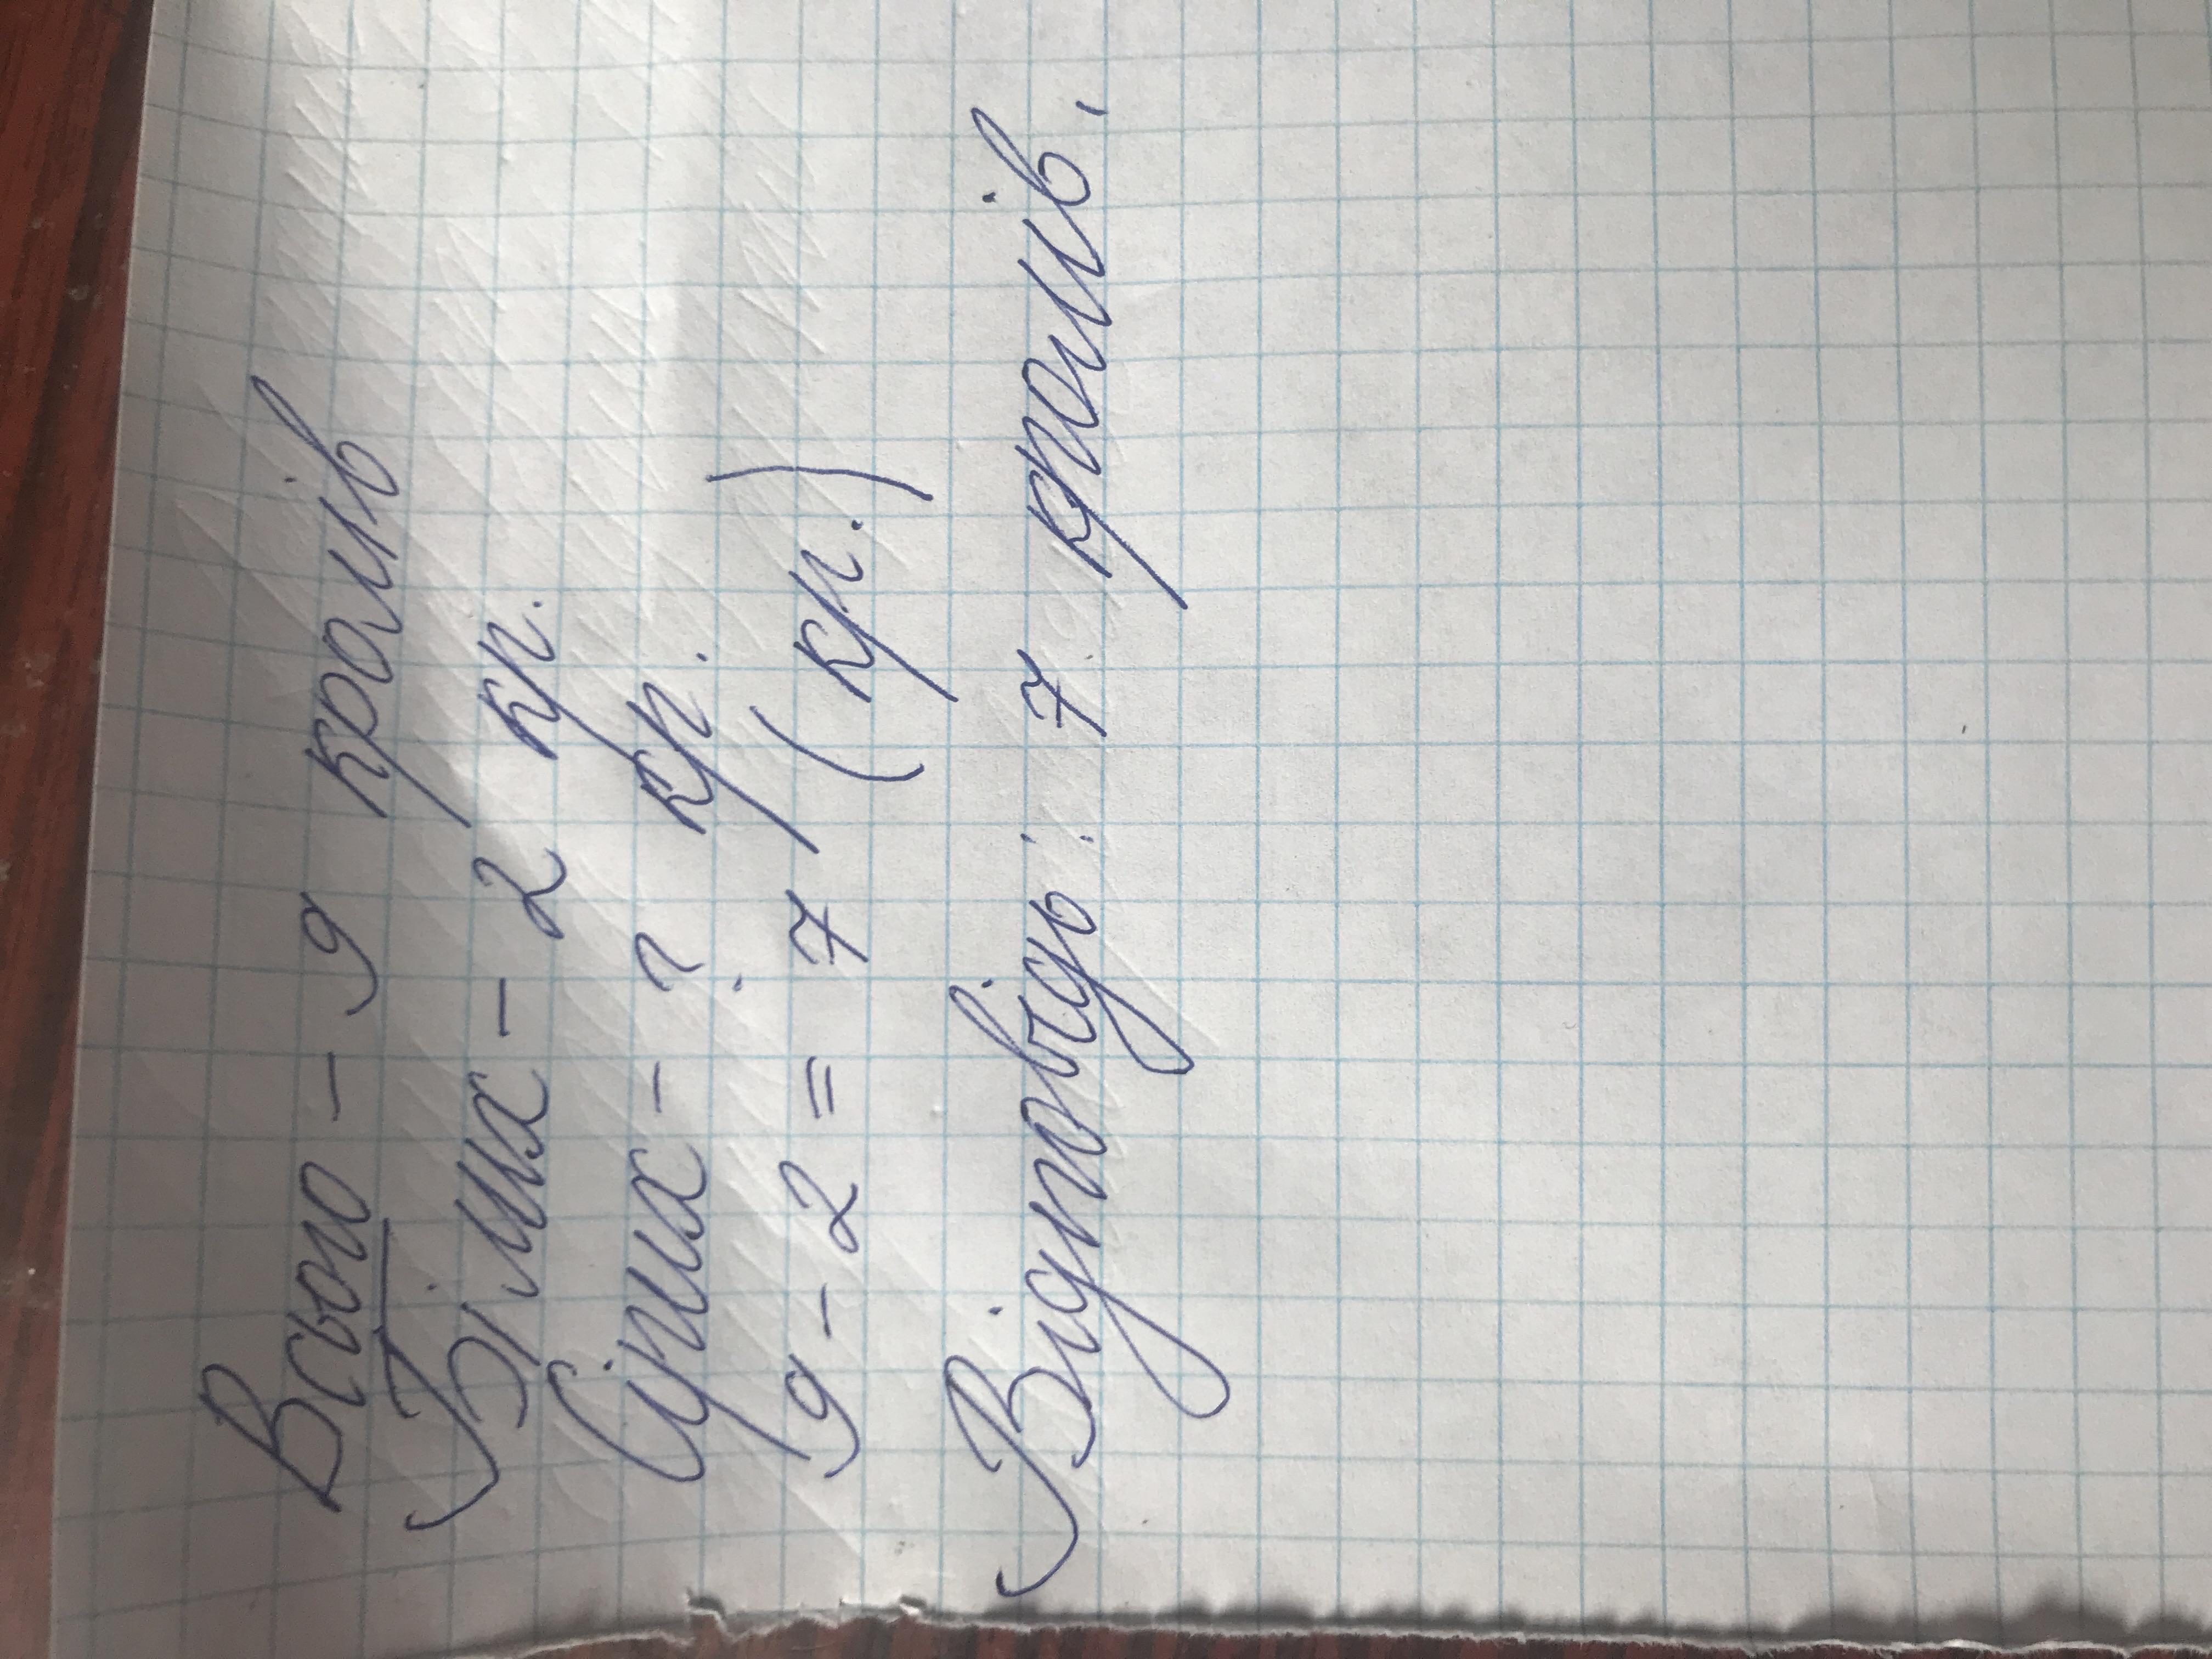 Всього - 9 кролів
Білих - 2 кр.
Сірих - ? кр.
9 - 2 = 7 (кр.)
Відповідь: 7 кролів.